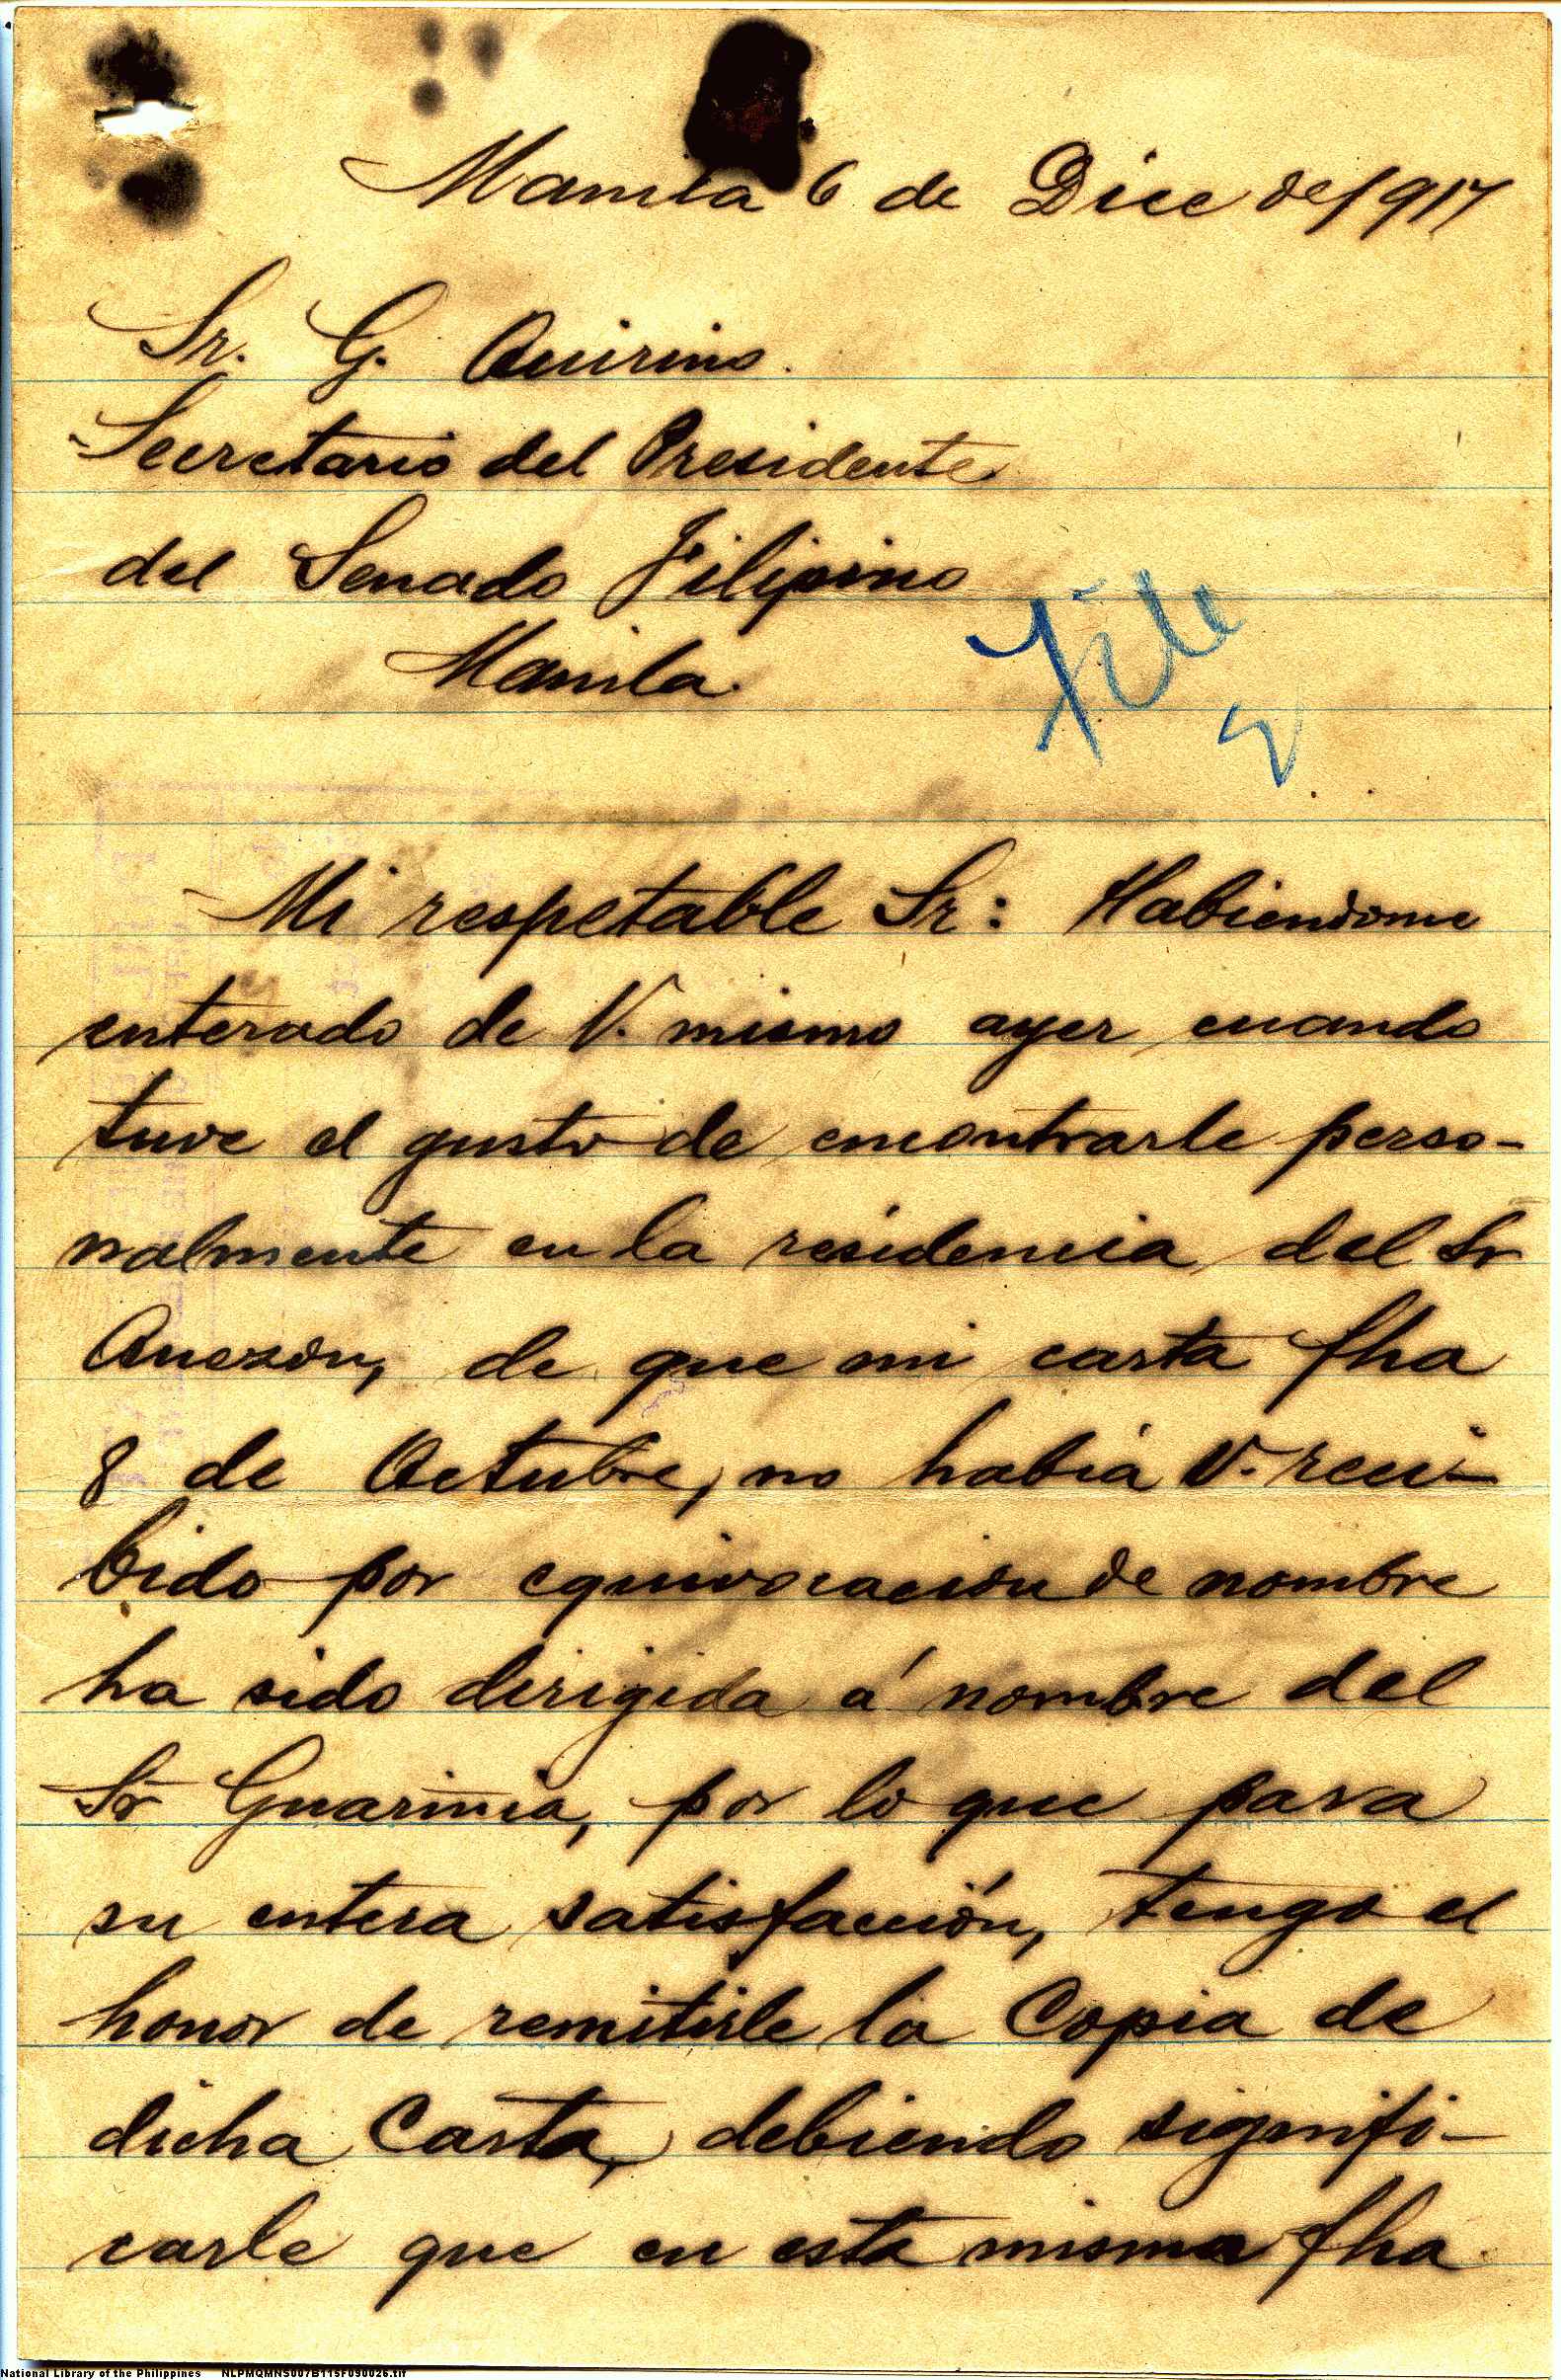 Manila 6 de Dice de 1917
Sr. G. Quirino.
Secretario del Presidente
del Senado Filipino
Manila.
File
Mi respetable Sr: Habiendome
enterado de V. mismo ayer cuando
tuve el gusto de encontrarle perso-
nalmente en la residencia del Sr
Quezon, de que mi carta fha
8 de Octubre, no habia V. reci-
bido por equivocacion de nombre
ha sido dirigida á nombre del
Sr Guarinia, por lo que para
su entera satisfacción, tengo el
honor de remitirle la Copia de
dicha Carta, debiendo signifi-
carle que en esta misma fha
National Library of the Philippines NLPMQMNS007B115F090026.tif